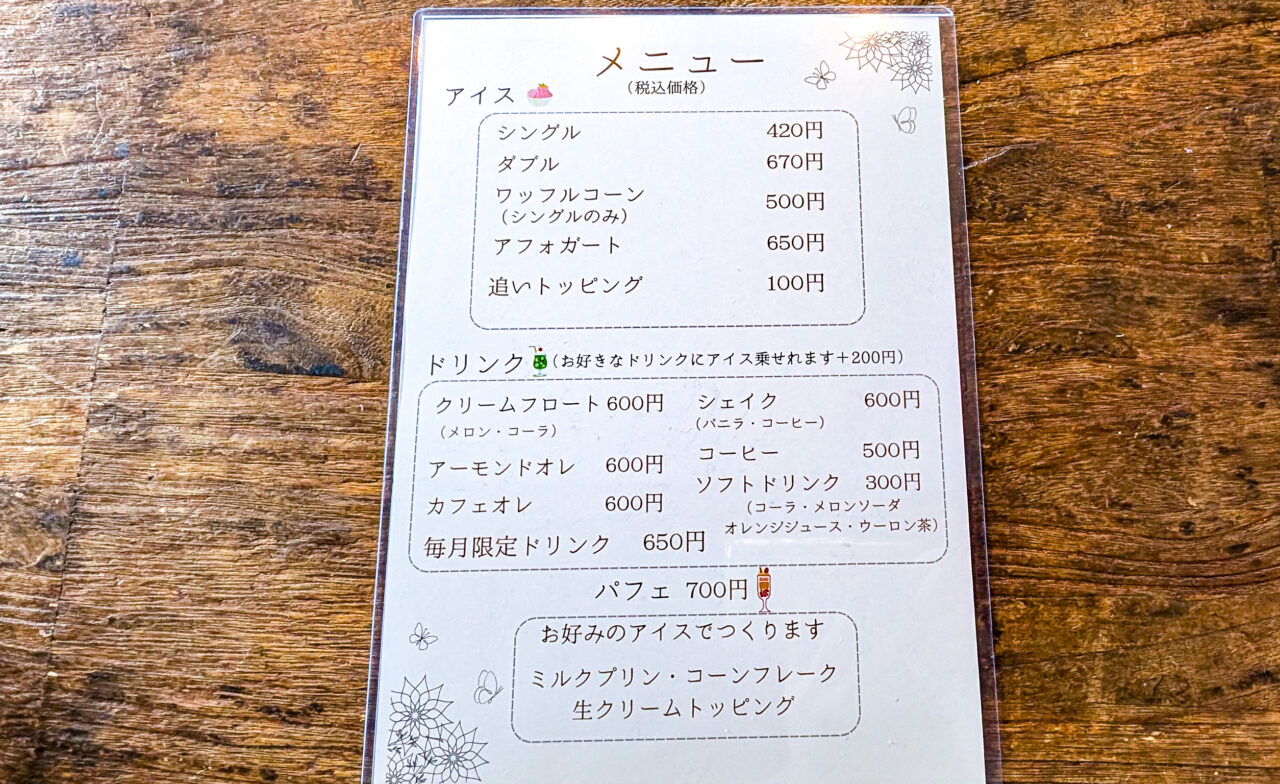 メニュー
（税込価格）
アイス
シングル 420円
ダブル 670円
ワッフルコーン 500円
（シングルのみ）
アフォガート 650円
追いトッピング 100円
ドリンク（お好きなドリンクにアイス乗せれます＋200円）
クリームフロート 600円
（メロン・コーラ）
アーモンドオレ 600円
カフェオレ 600円
毎月限定ドリンク 650円
シェイク 600円
（バニラ・コーヒー）
コーヒー 500円
ソフトドリンク 300円
（コーラ・メロンソーダ
オレンジジュース・ウーロン茶）
パフェ 700円
お好みのアイスでつくります
ミルクプリン・コーンフレーク
生クリームトッピング